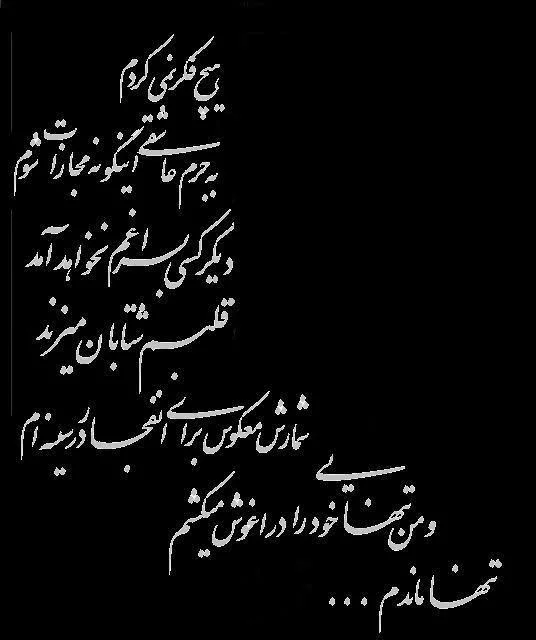 هیچ فکر نمی کردم
به جرم عاشقی اینگونه مجازات شوم
دیگر کسی بسراغم نخواهد آمد
قلبم شتابان میزند
شمارش معکوس برای انفجار در سینه ام
و من تنهایی خود را در اغوش میکشم
تنها ماندم ...